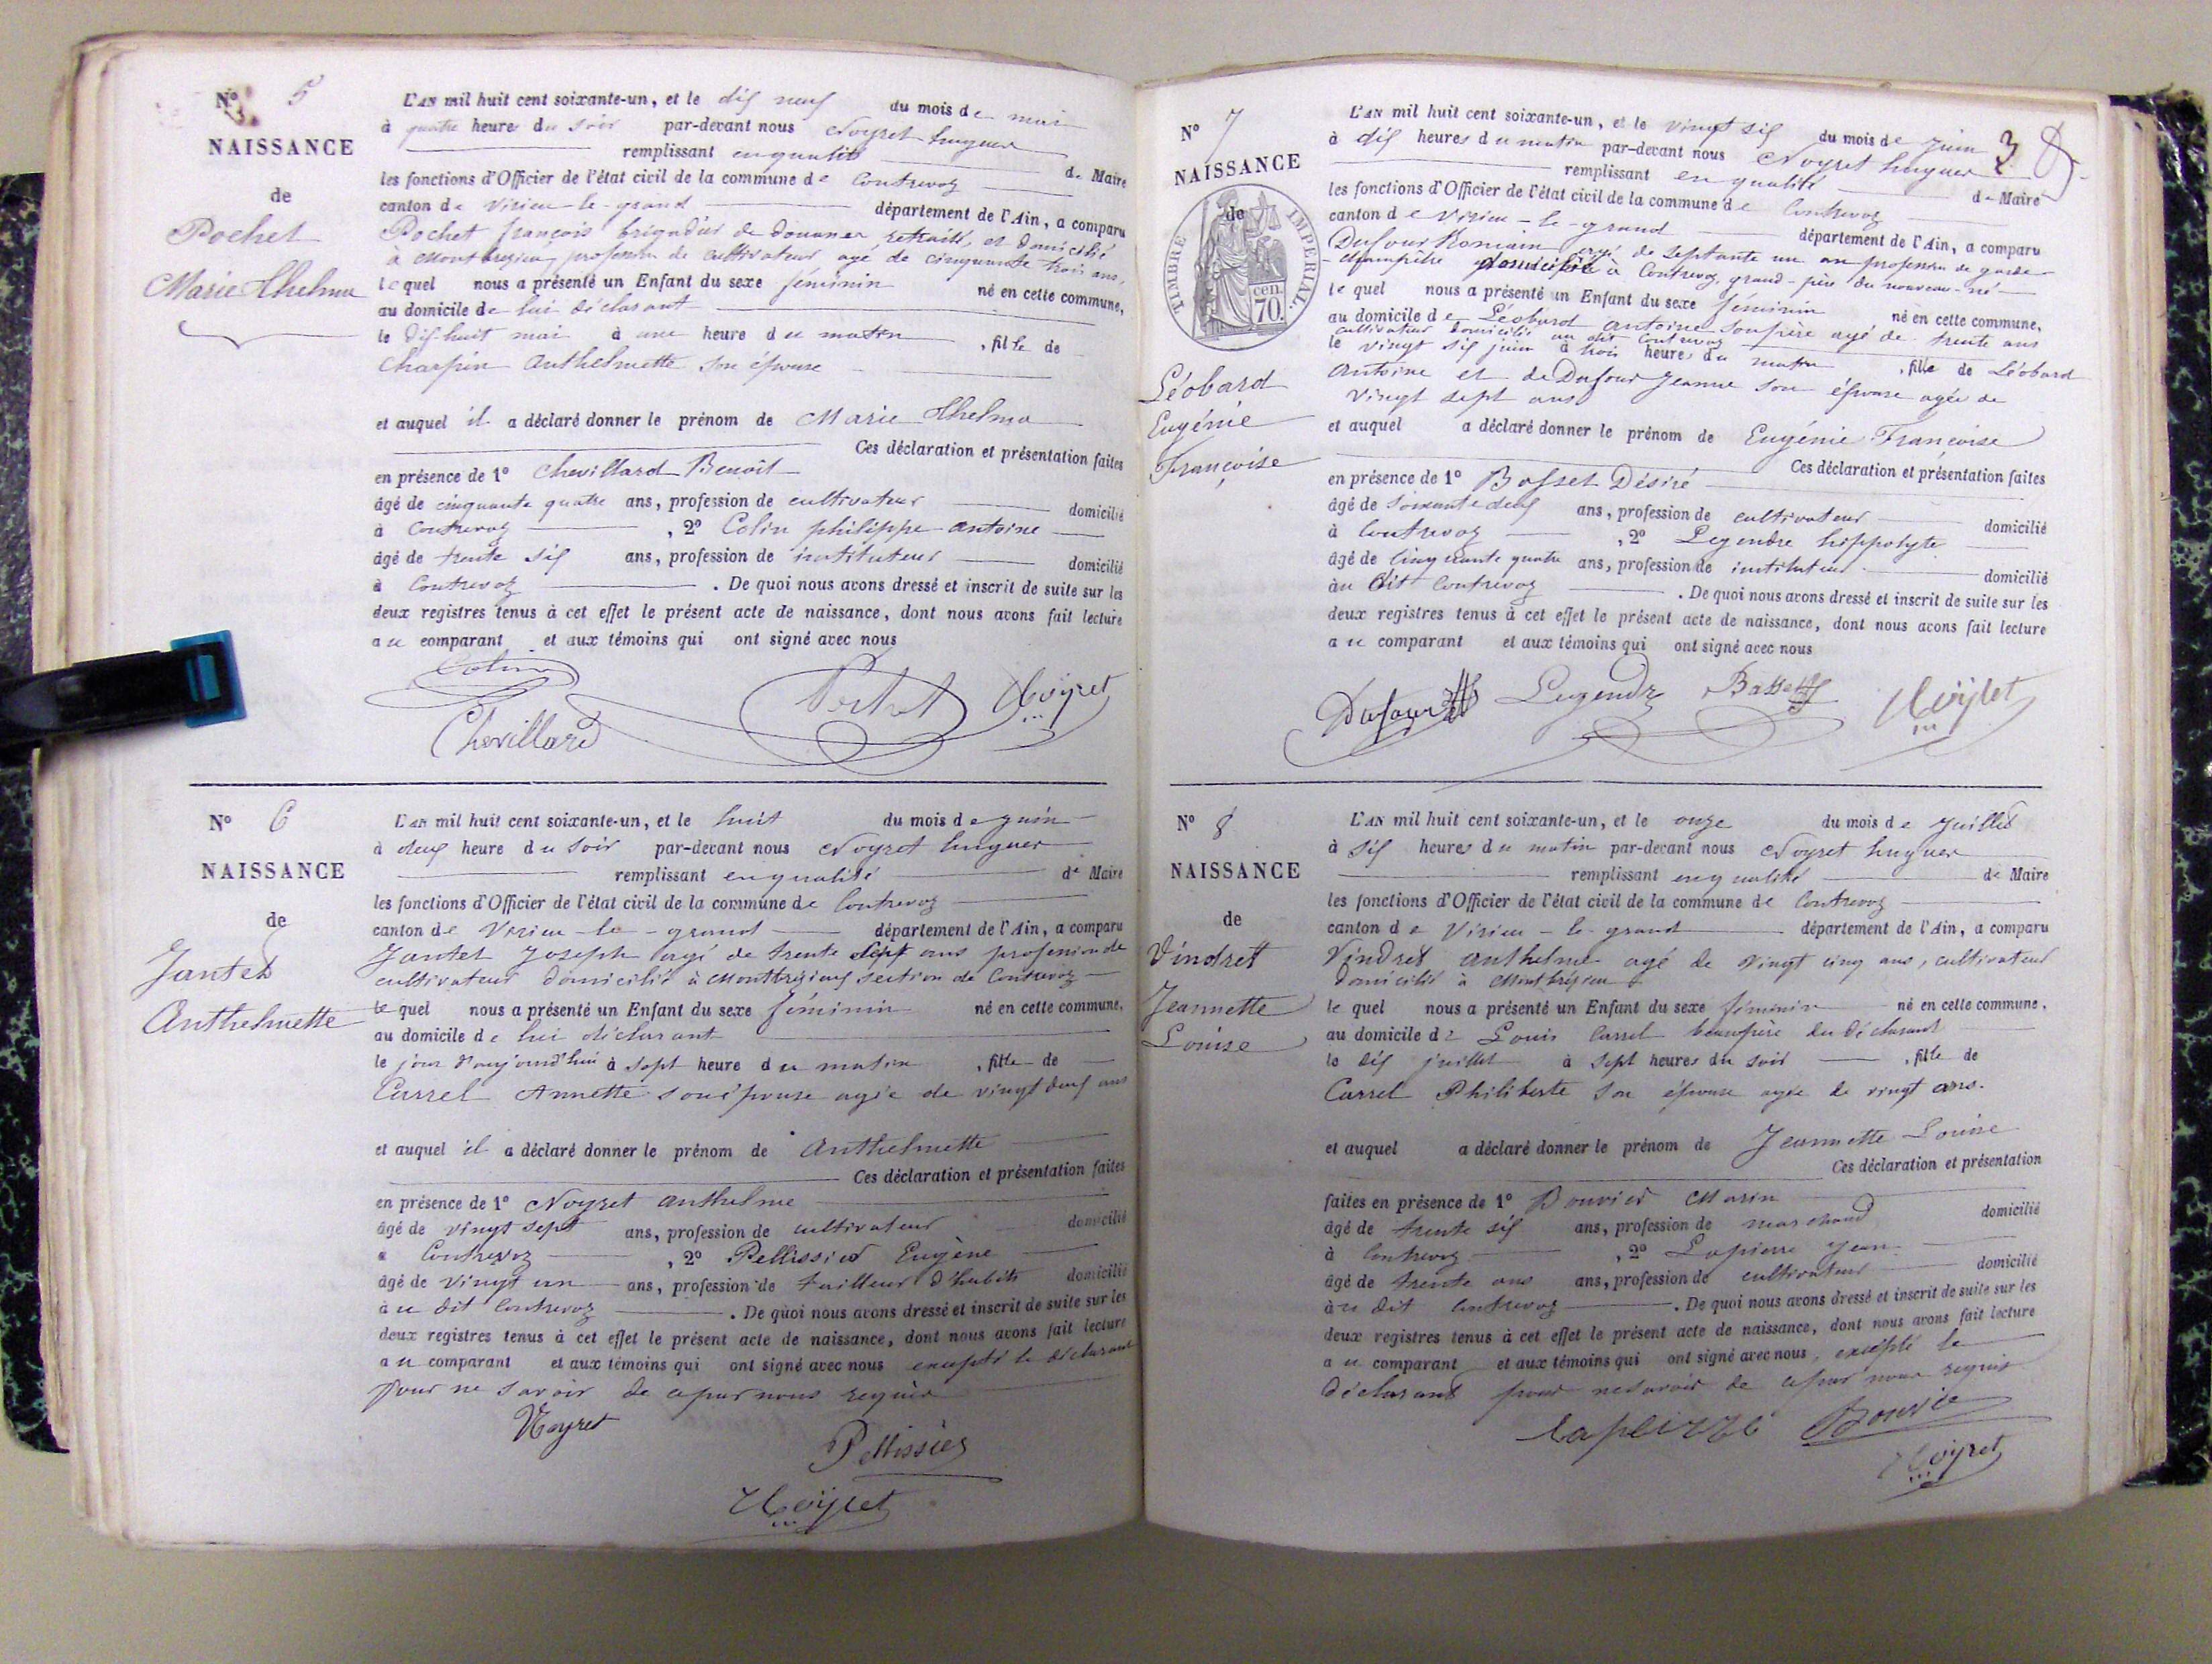 N° 5
NAISSANCE
de
Pochet
Marie Thelma
L'AN mil huit cent soixante-un, et le dix neuf du mois de mai
à quatre heures du soir par-devant nous Noyret huguer
remplissant en qualité de Maire
les fonctions d'Officier de l'état civil de la commune de Contrevoz
canton de Virieu-le-grand département de l'Ain, a comparu
Pochet françois brigadier de douanes, retraité, et domicilié
à Montbreziay, profession de cultivateur agé de cinquante trois ans,
lequel nous a présenté un Enfant du sexe féminin né en cette commune,
au domicile de lui déclarant
le dix-huit mai à une heure du matin, fille de
Charpin Anthelmette son épouse
et auquel il a déclaré donner le prénom de Marie Thelma
Ces déclaration et présentation faites
en présence de 1° Chevillard Benoit
âgé de cinquante quatre ans, profession de cultivateur domicilié
à Contrevoz, 2° Colin philippe antoine
âgé de trente six ans, profession de instituteur domicilié
à Contrevoz. De quoi nous avons dressé et inscrit de suite sur les
deux registres tenus à cet effet le présent acte de naissance, dont nous avons fait lecture
au comparant et aux témoins qui ont signé avec nous
Colin
Pochet Noyret
Chevillard
N° 6
NAISSANCE
de
Jantet
Anthelmette
L'AN mil huit cent soixante-un, et le huit du mois de juin
à deux heure du soir par-devant nous Noyret huguer
remplissant en qualité de Maire
les fonctions d'Officier de l'état civil de la commune de Contrevoz
canton de Virieu-le-grand département de l'Ain, a comparu
Jantet Joseph agé de trente sept ans profession de
cultivateur domicilié à Montbrezieux section de Contrevoz
lequel nous a présenté un Enfant du sexe féminin né en cette commune,
au domicile de lui déclarant
le jour d'aujourd'hui à sept heure du matin, fille de
Carrel Annette son épouse agée de vingt deux ans
et auquel il a déclaré donner le prénom de Anthelmette
Ces déclaration et présentation faites
en présence de 1° Noyret Anthelme
âgé de vingt sept ans, profession de cultivateur domicilié
à Contrevoz, 2° Pellissier Eugène
âgé de vingt un ans, profession de tailleur d'habits domicilié
au dit Contrevoz. De quoi nous avons dressé et inscrit de suite sur les
deux registres tenus à cet effet le présent acte de naissance, dont nous avons fait lecture
au comparant et aux témoins qui ont signé avec nous excepté le déclarant
pour ne savoir de ce par nous requis
Noyret
Pellissier
Noyret
3 8
N° 7
NAISSANCE
de
TIMBRE IMPERIAL.
cen.
70.
Léobard
Eugénie
Françoise
L'AN mil huit cent soixante-un, et le vingt six du mois de juin
à dix heures du matin par-devant nous Noyret huguer
remplissant en qualité de Maire
les fonctions d'Officier de l'état civil de la commune de Contrevoz
canton de Virieu-le-grand département de l'Ain, a comparu
Dufour Romain agé de septante un an profession de garde-
-champêtre domicilié à Contrevoz, grand-père du nouveau-né
lequel nous a présenté un Enfant du sexe féminin né en cette commune,
au domicile de Léobard antoine son père agé de trente ans
cultivateur domicilié au dit Contrevoz
le vingt six juin à trois heures du matin, fille de Léobard
Antoine et de Dufour Jeanne son épouse agée de
vingt sept ans
et auquel a déclaré donner le prénom de Eugénie Françoise
Ces déclaration et présentation faites
en présence de 1° Basset Désiré
âgé de soixante deux ans, profession de cultivateur domicilié
à Contrevoz, 2° Legendre hippolyte
âgé de cinquante quatre ans, profession de instituteur domicilié
au dit Contrevoz. De quoi nous avons dressé et inscrit de suite sur les
deux registres tenus à cet effet le présent acte de naissance, dont nous avons fait lecture
au comparant et aux témoins qui ont signé avec nous
Dufour Legendre Basset Noyret
N° 8
NAISSANCE
de
Vindret
Jeannette
Louise
L'AN mil huit cent soixante-un, et le onze du mois de Juillet
à six heures du matin par-devant nous Noyret huguer
remplissant en qualité de Maire
les fonctions d'Officier de l'état civil de la commune de Contrevoz
canton de Virieu-le-grand département de l'Ain, a comparu
Vindret anthelme agé de vingt cinq ans, cultivateur
domicilié à Montbrézieu
lequel nous a présenté un Enfant du sexe féminin né en cette commune,
au domicile de Louis Carrel beaupère du déclarant
le dix juillet à sept heures du soir, fille de
Carrel Philiberte son épouse agée de vingt ans.
et auquel a déclaré donner le prénom de Jeannette Louise
Ces déclaration et présentation
faites en présence de 1° Bouvier Marin
âgé de trente six ans, profession de marchand domicilié
à Contrevoz, 2° Lapierre Jean
âgé de trente ans ans, profession de cultivateur domicilié
au dit Contrevoz. De quoi nous avons dressé et inscrit de suite sur les
deux registres tenus à cet effet le présent acte de naissance, dont nous avons fait lecture
au comparant et aux témoins qui ont signé avec nous, excepté le
déclarant pour ne savoir de ce par nous requis
lapierre Bouvier
Noyret